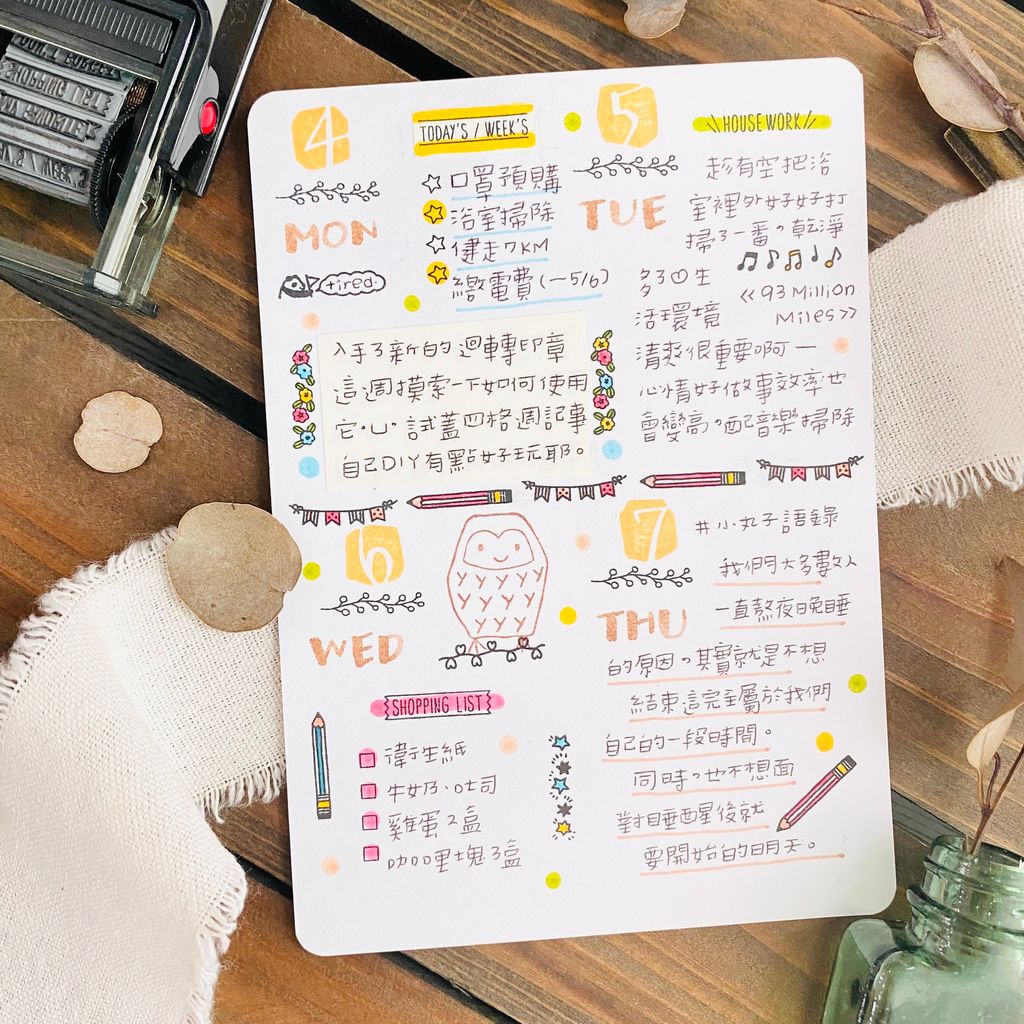 4
MON
tired.
TODAY'S / WEEK'S
口罩預購
浴室掃除
健走7KM
繳電費(—5/6)
入手了新的迴轉印章
這週摸索一下如何使用
它•U•試蓋四格週記事
自己DIY有點好玩耶。
5
TUE
HOUSEWORK
趁有空把浴
室裡外好好打
掃了一番，乾淨
多了 生
活環境
《93 Million
Miles》
清爽很重要啊—
心情好做事效率也
會變高，配音樂掃除
6
WED
SHOPPING LIST
衛生紙
牛奶、吐司
雞蛋2盒
咖哩塊3盒
7
THU
#小丸子語錄
我們大多數人
一直熬夜晚睡
的原因，其實就是不想
結束這完全屬於我們
自己的一段時間。
同時，也不想面
對睡醒後就
要開始的明天。